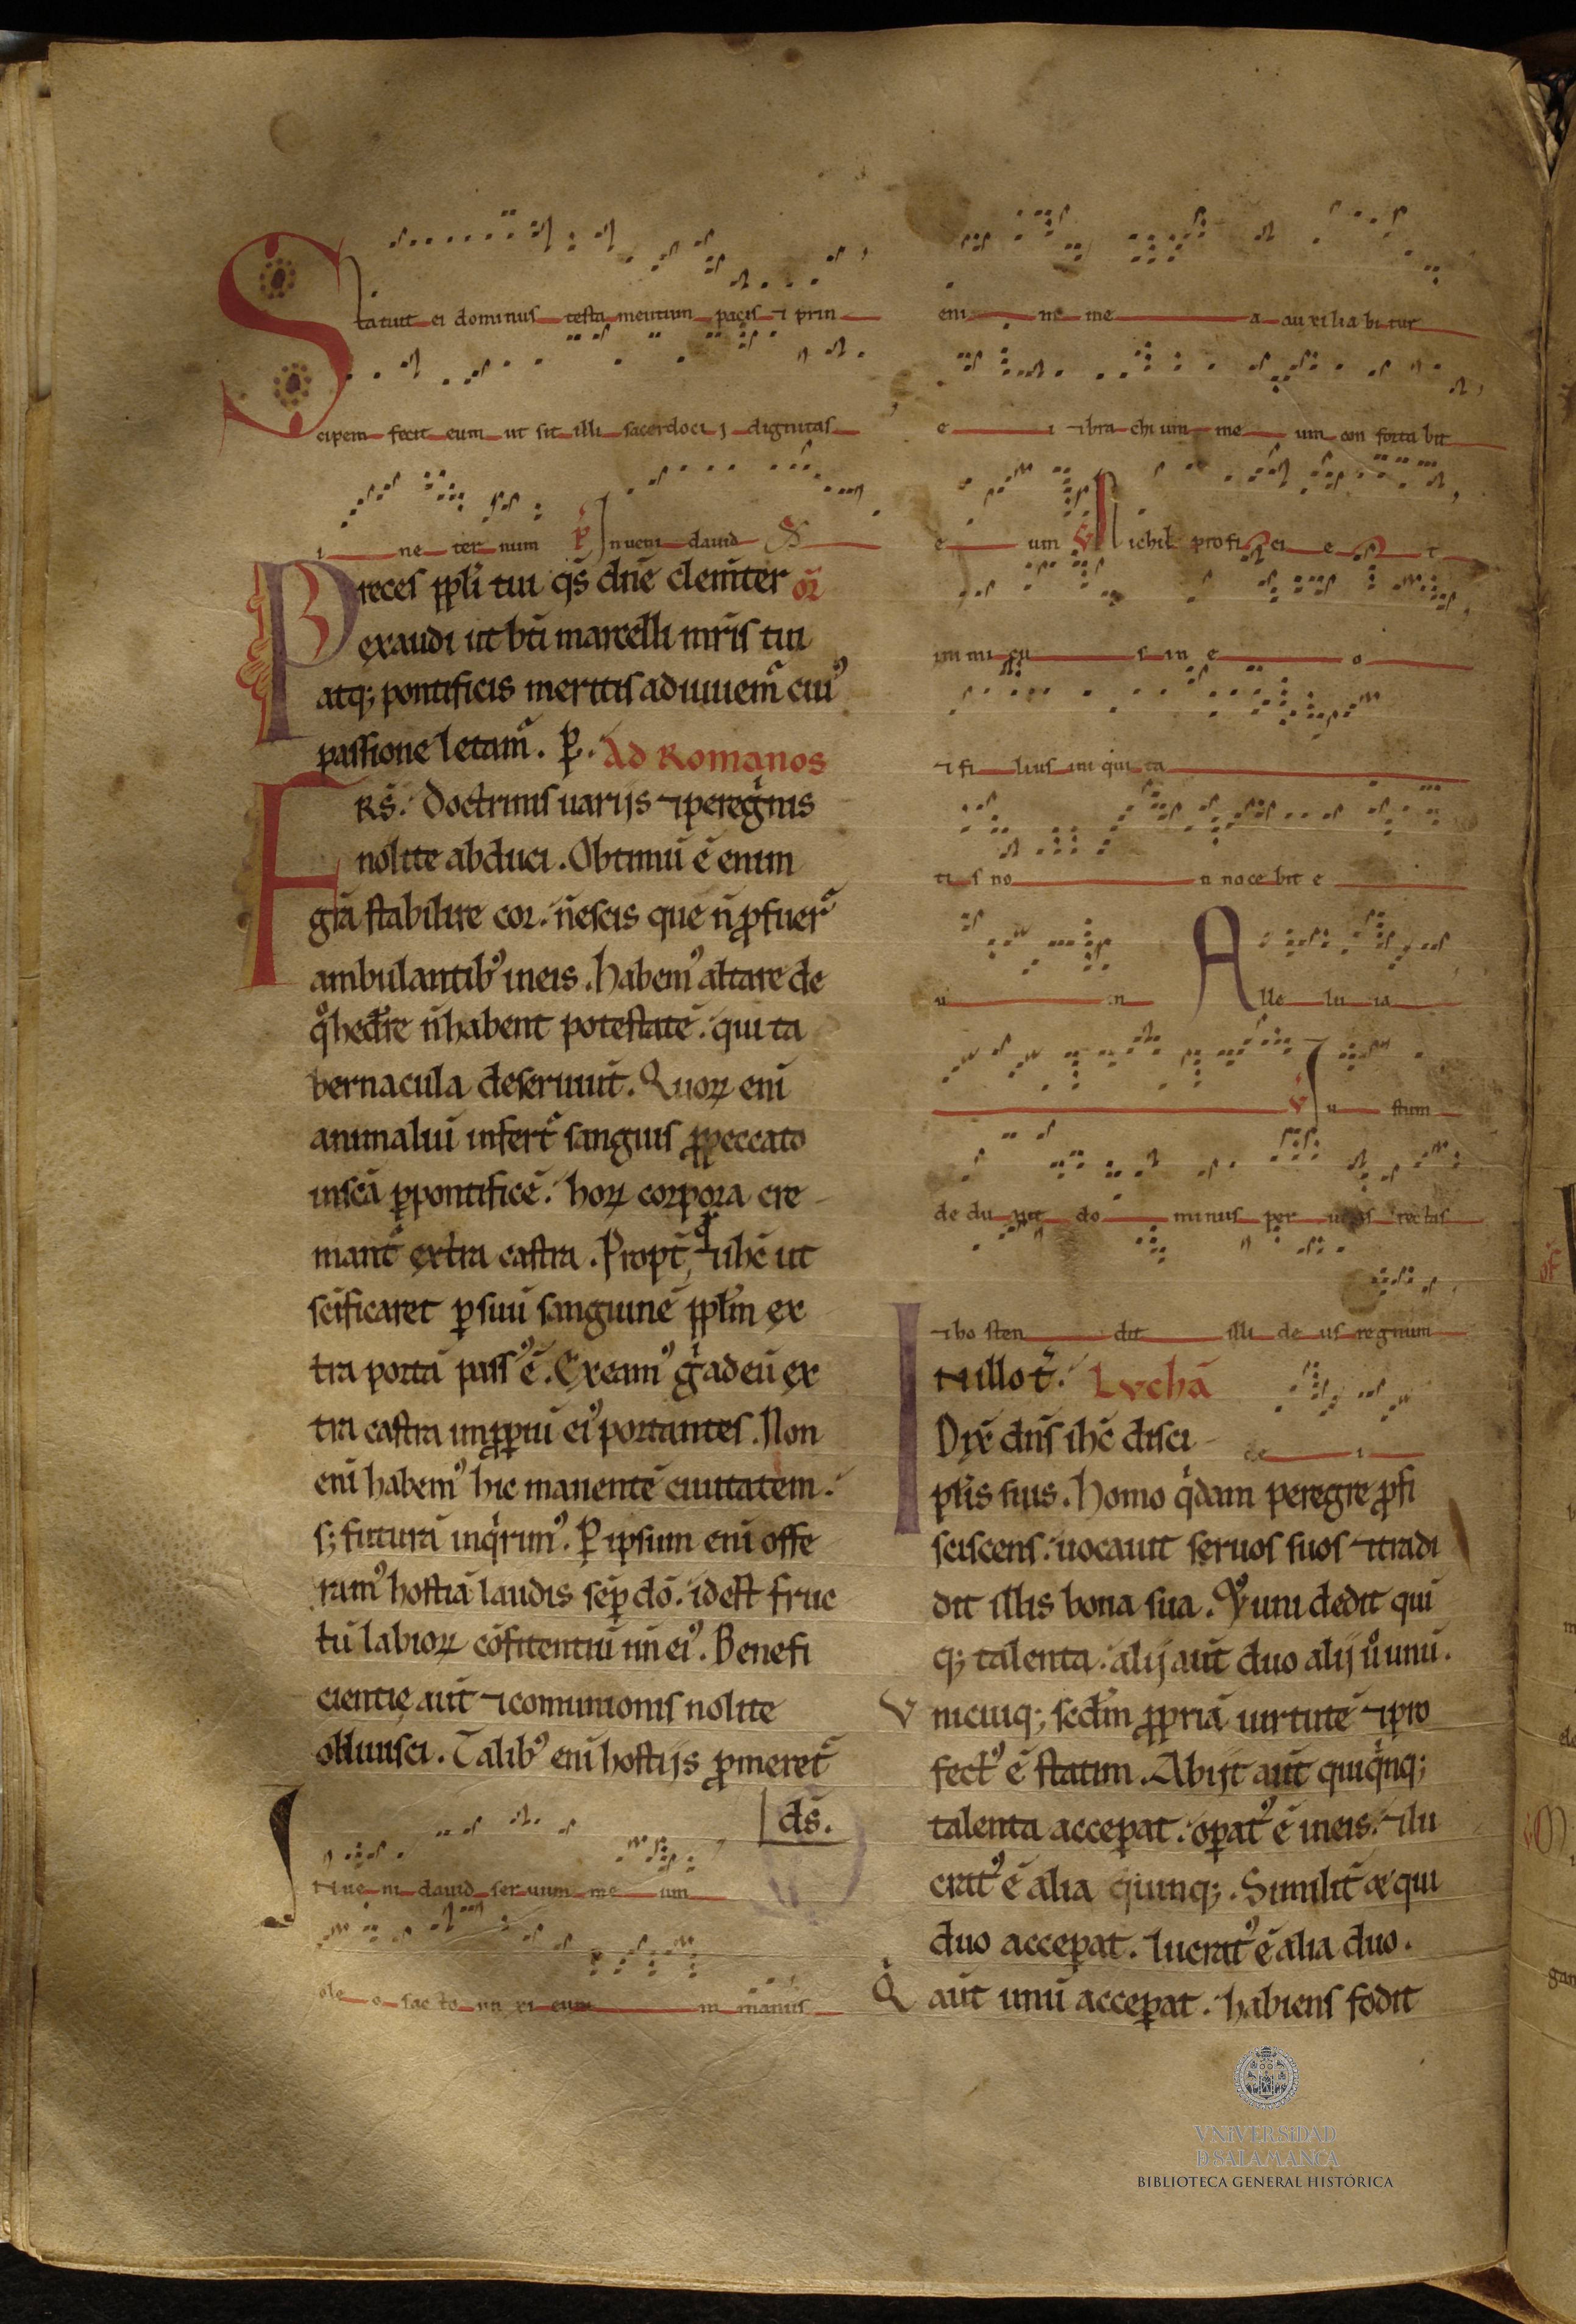 Statuit ei dominus testamentum pacis ⁊ prin
cipem fecit eum ut sit illi sacerdocij dignitas
in eternum P̃ Inueni dauid
Preces ppl̃i tui q̃s dñe clem̃ter or̃
exaudi ut bt̃i marcelli mr̃is tui
atq; pontificis meritis adiuuem᷑ cui᷒
passione letam᷑. P̲. Ad Romanos
FRS̃. Doctrinis uarijs ⁊ peregͥnis
nolite abduci. Obtimũ ẽ enim
gr̃a stabilire cor. ñ escis que ñ ꝓfuer᷑
ambulantib᷒ in eis. habem᷒ altare de
qͦ hedr̃e ñ habent potestatẽ. qui ta
bernacula deseruiũt. Quoꝝ enĩ
animaliũ infert᷑ sanguis ꝓ peccato
in sc̃a ꝑ pontificẽ. hoꝝ corpora cre
mant᷑ extra castra. Propt̃ qd̃ ⁊ ihc̃ ut
sc̃ificaret ꝑ suũ sanguinẽ ppl̃m ex
tra portã pass᷒ ẽ. Exeam᷒ gͥ ad eũ ex
tra castra inꝓpiũ ei᷒ portantes. Non
enĩ habem᷒ hic manentẽ ciuitatem.
s; futurã inqͥrim᷒. Ꝑ ipsum enĩ offe
ram᷒ hostiã laudis sẽꝑ dõ. id est fruc
tũ labioꝝ cõfitentiũ nñi ei᷒. Benefi
cientie aut̃ ⁊ comunionis nolite
obliuisci. Talib᷒ enĩ hostijs ꝓmeret᷑
ds̃.
Inueni dauid seruum meum
oleo sancto unxi eum manus
enim mea auxiliabitur
ei ⁊ brachium meum confortabit
eum V̇ Nichil proficiet
inimicus in eo
⁊ filius iniquita
tis non nocebit e
i Alleluia
V̇ Iustum
deduxit dominus per uias rectas
⁊ hostendit illi deus regnum
IN illo t̃. Lvchã
Dix̃ dñs ihc̃ disci de i
pl̃is suis. Homo qͥdam peregre ꝓfi
sciscens. uocauit seruos suos ⁊ tradi
dit illis bona sua. ⁊ uni dedit quĩ
q; talenta. alij aut̃ duo alij uͦ unũ.
Vnicuiq; scd̃m ꝓpriã uirtutẽ ⁊ pro
fect᷒ ẽ statim. Abijt aut̃ qui qͥnq;
talenta acceꝑat. oꝑat᷒ ẽ in eis. ⁊ lu
crat᷒ ẽ alia quinq;. Similit̃ qui
duo acceꝑat. lucrat᷒ ẽ alia duo.
Qͥ aut̃ unũ acceꝑat. habiens fodit
VNIVERSIDAD
D SALAMANCA
BIBLIOTECA GENERAL HISTÓRICA